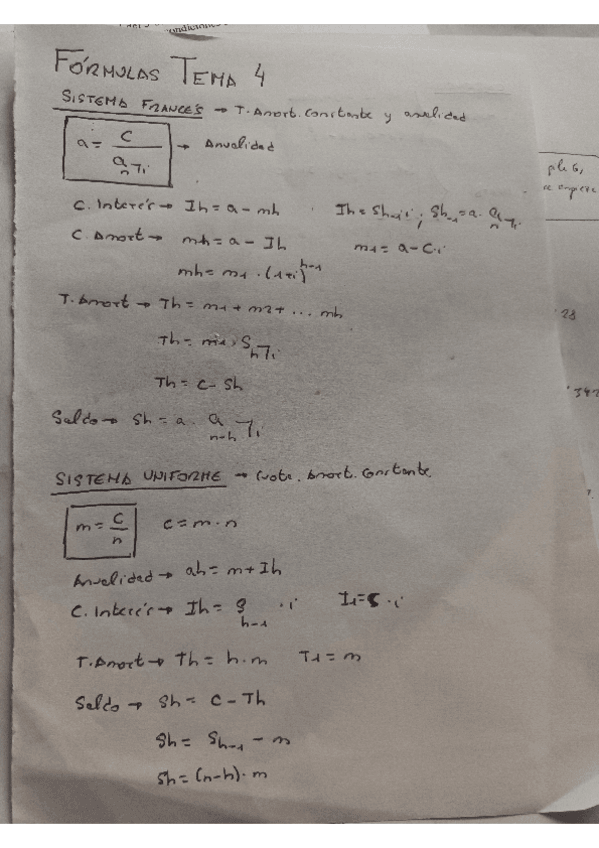 ndicione
FÓRMULAS TEMA 4
SISTEMA FRANCÉS → T. Amort. Constante y anualidad
a = C / a n⌉i → Anualidad
C. Interés → Ih = a - mh Ih = Sh-1·i ; Sh-1 = a · a n⌉i
C. Amort → mh = a - Ih m1 = a - C·i
mh = m1 · (1+i)^h-1
T. Amort → Th = m1 + m2 + ... mh
Th = m1 · S h⌉i
Th = C - Sh
Saldo → Sh = a · a n-h⌉i
SISTEMA UNIFORME → Cuota. Amort. Constante
m = C / n C = m · n
Anualidad → ah = m + Ih
C. Interés → Ih = S h-1 · i I1 = S · i
T. Amort → Th = h · m T1 = m
Saldo → Sh = C - Th
Sh = Sh-1 - m
Sh = (n-h) · m
ple 6,
e empiece
28
342